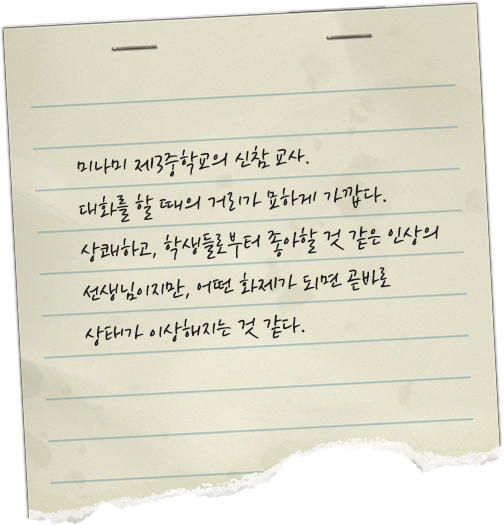 미나미 제3중학교의 신참 교사.
대화를 할 때의 거리가 묘하게 가깝다.
상쾌하고, 학생들로부터 좋아할 것 같은 인상의
선생님이지만, 어떤 화제가 되면 곧바로
상태가 이상해지는 것 같다.